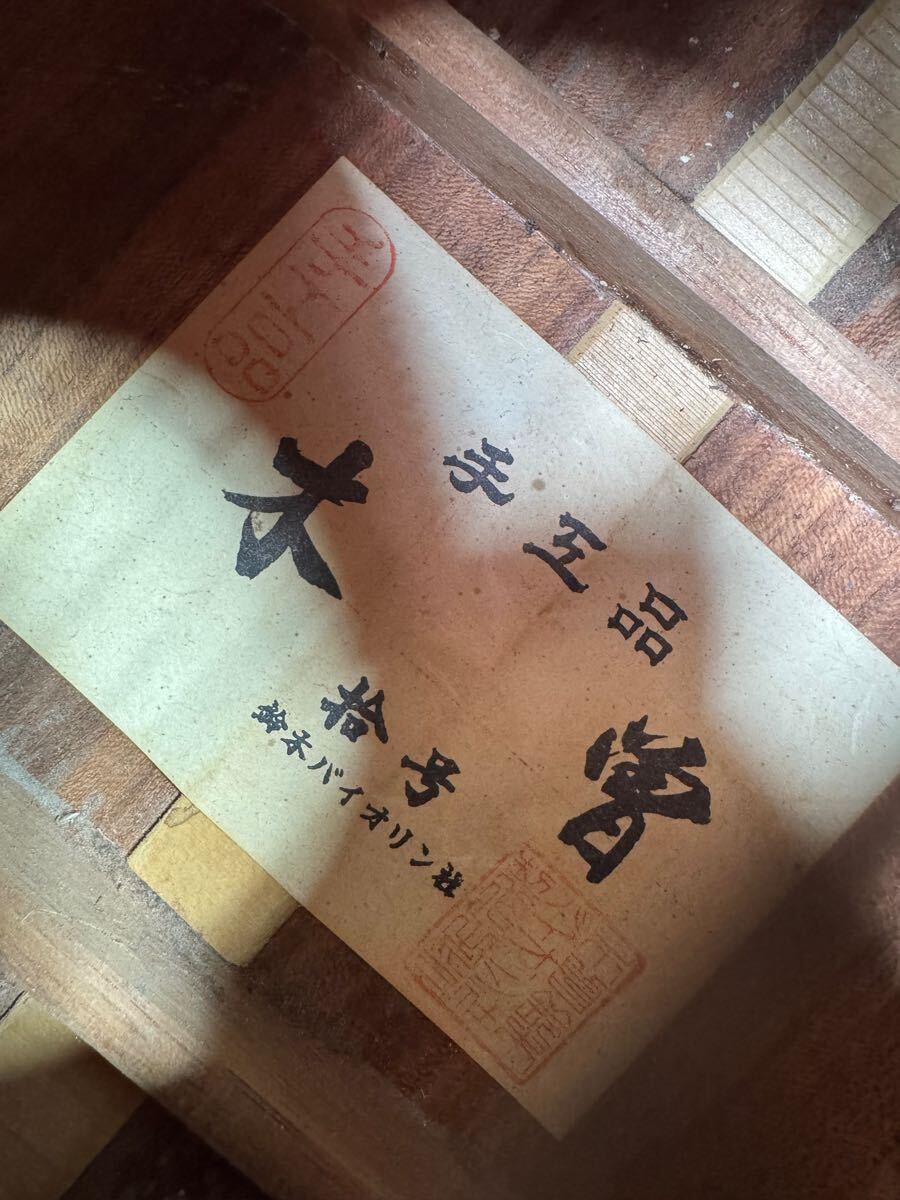 手工品
木曽
拾号
鈴木バイオリン社